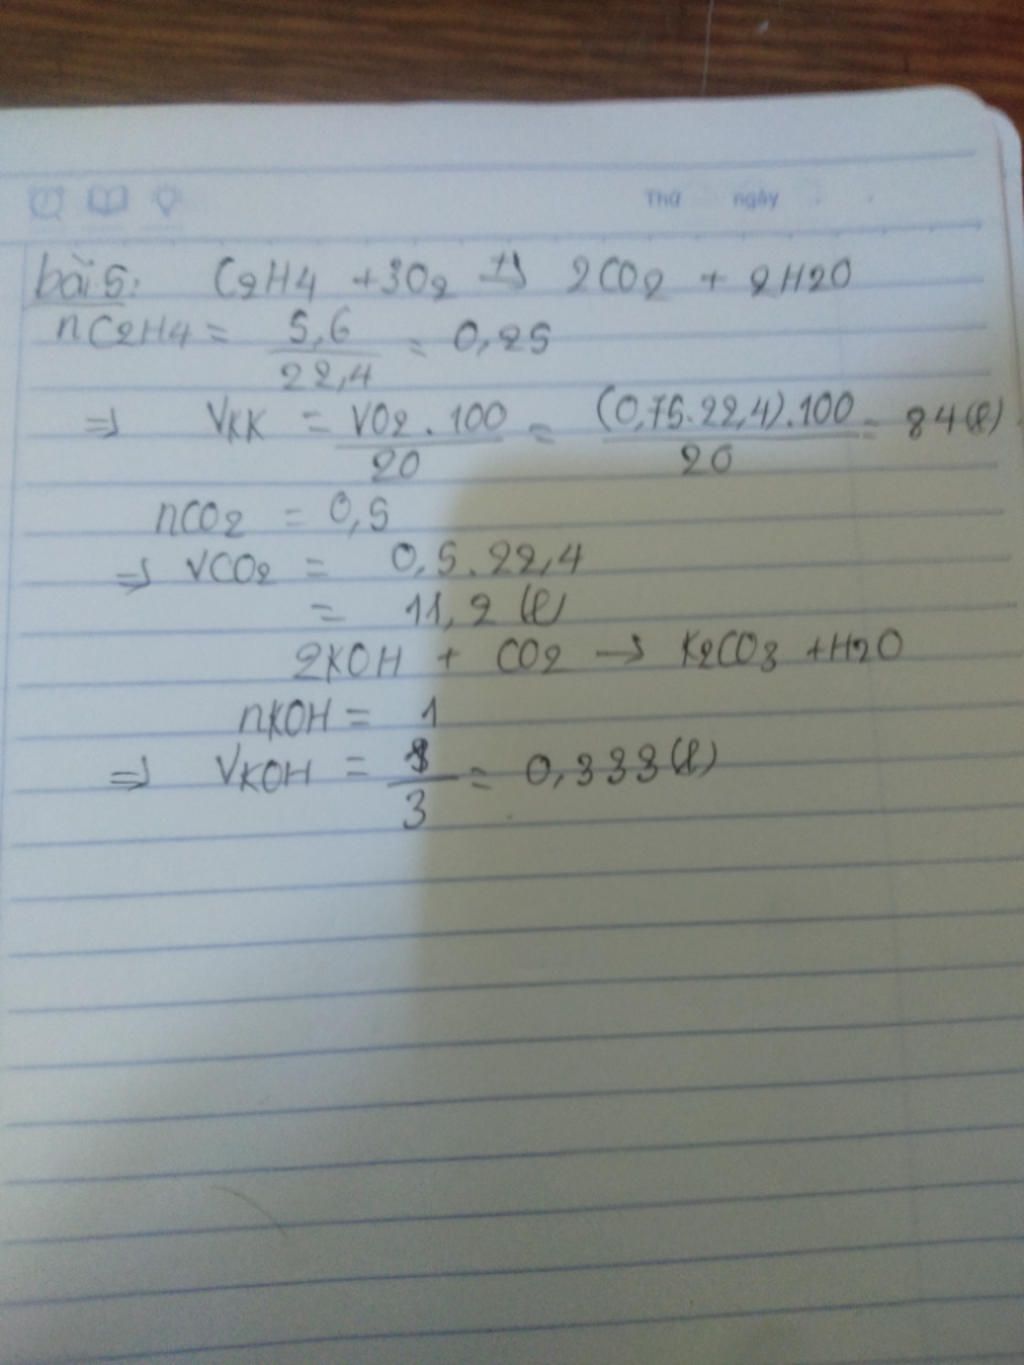 Thứ ngày
bài 5: C2H4 + 3O2 → 2CO2 + 2H2O
nC2H4 = 5,6 / 22,4 = 0,25
⇒ VKK = VO2 . 100 / 20 = (0,75.22,4).100 / 20 = 84 (l)
nCO2 = 0,5
⇒ VCO2 = 0,5.22,4
= 11,2 (l)
2KOH + CO2 → K2CO3 + H2O
nKOH = 1
⇒ VKOH = 1 / 3 = 0,333 (l)